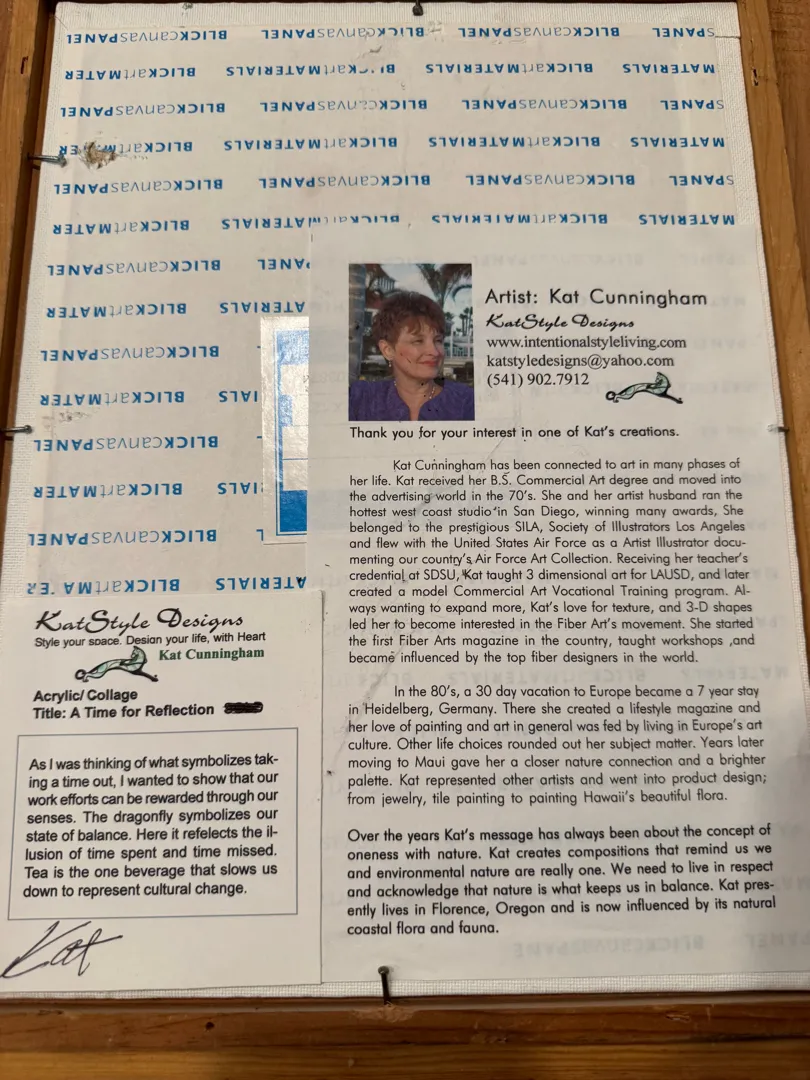 sPANEL BLICKcanvasPANEL BLICKcanvasPANEL BLICKcanvasPANEL
MATERIALS BLICKartMATERIALS BLICKartMATERIALS BLICKartMATER
sPANEL BLICKcanvasPANEL BLICKcanvasPANEL BLICKcanvasPANEL
MATERIALS BLICKartMATERIALS BLICKartMATERIALS BLICKartMATER
sPANEL BLICKcanvasPANEL BLICKcanvasPANEL BLICKcanvasPANEL
MATERIALS BLICKartMATERIALS BLICKartMATERIALS BLICKartMATER
ANEL BLICKcanvasPANEL
ATERIALS BLICKartMATER
L BLICKcanvasPANEL
IALS BLICKartMATER
L BLICKcanvasPANEL
IALS BLICKartMATER
L BLICKcanvasPANEL
ATERIALS BLICKartMATER
Artist: Kat Cunningham
KatStyle Designs
www.intentionalstyleliving.com
katstyledesigns@yahoo.com
(541) 902.7912
Thank you for your interest in one of Kat's creations.
Kat Cunningham has been connected to art in many phases of
her life. Kat received her B.S. Commercial Art degree and moved into
the advertising world in the 70's. She and her artist husband ran the
hottest west coast studio in San Diego, winning many awards, She
belonged to the prestigious SILA, Society of Illustrators Los Angeles
and flew with the United States Air Force as a Artist Illustrator docu-
menting our country's Air Force Art Collection. Receiving her teacher's
credential at SDSU, Kat taught 3 dimensional art for LAUSD, and later
created a model Commercial Art Vocational Training program. Al-
ways wanting to expand more, Kat's love for texture, and 3-D shapes
led her to become interested in the Fiber Art's movement. She started
the first Fiber Arts magazine in the country, taught workshops ,and
became influenced by the top fiber designers in the world.
In the 80's, a 30 day vacation to Europe became a 7 year stay
in Heidelberg, Germany. There she created a lifestyle magazine and
her love of painting and art in general was fed by living in Europe's art
culture. Other life choices rounded out her subject matter. Years later
moving to Maui gave her a closer nature connection and a brighter
palette. Kat represented other artists and went into product design;
from jewelry, tile painting to painting Hawaii's beautiful flora.
Over the years Kat's message has always been about the concept of
oneness with nature. Kat creates compositions that remind us we
and environmental nature are really one. We need to live in respect
and acknowledge that nature is what keeps us in balance. Kat pres-
ently lives in Florence, Oregon and is now influenced by its natural
coastal flora and fauna.
KatStyle Designs
Style your space. Design your life, with Heart
Kat Cunningham
Acrylic/ Collage
Title: A Time for Reflection
As I was thinking of what symbolizes tak-
ing a time out, I wanted to show that our
work efforts can be rewarded through our
senses. The dragonfly symbolizes our
state of balance. Here it refelects the il-
lusion of time spent and time missed.
Tea is the one beverage that slows us
down to represent cultural change.
Kat